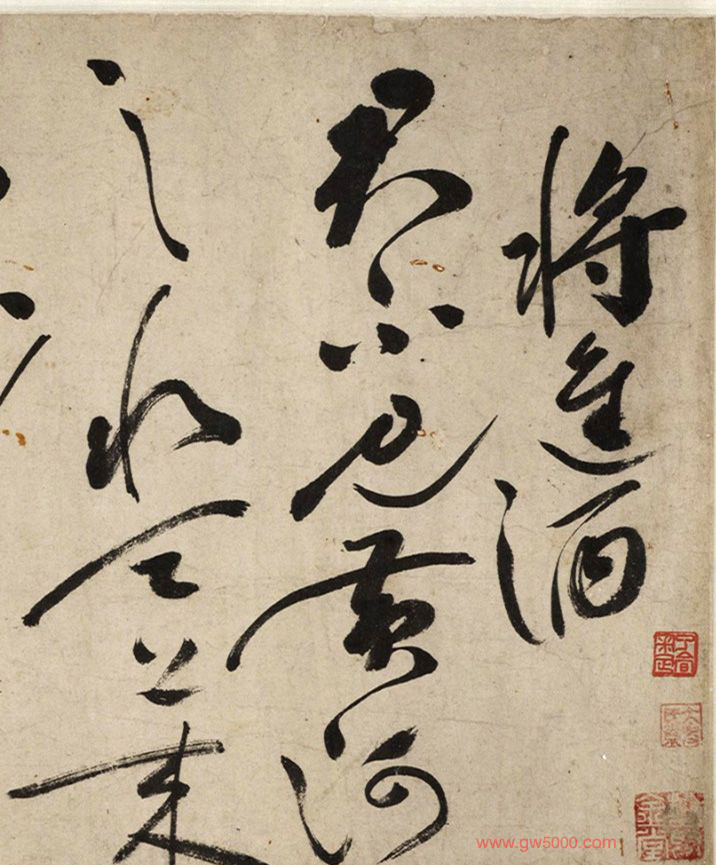 將進酒
君不見黃河
之水天上來
www.gw5000.com